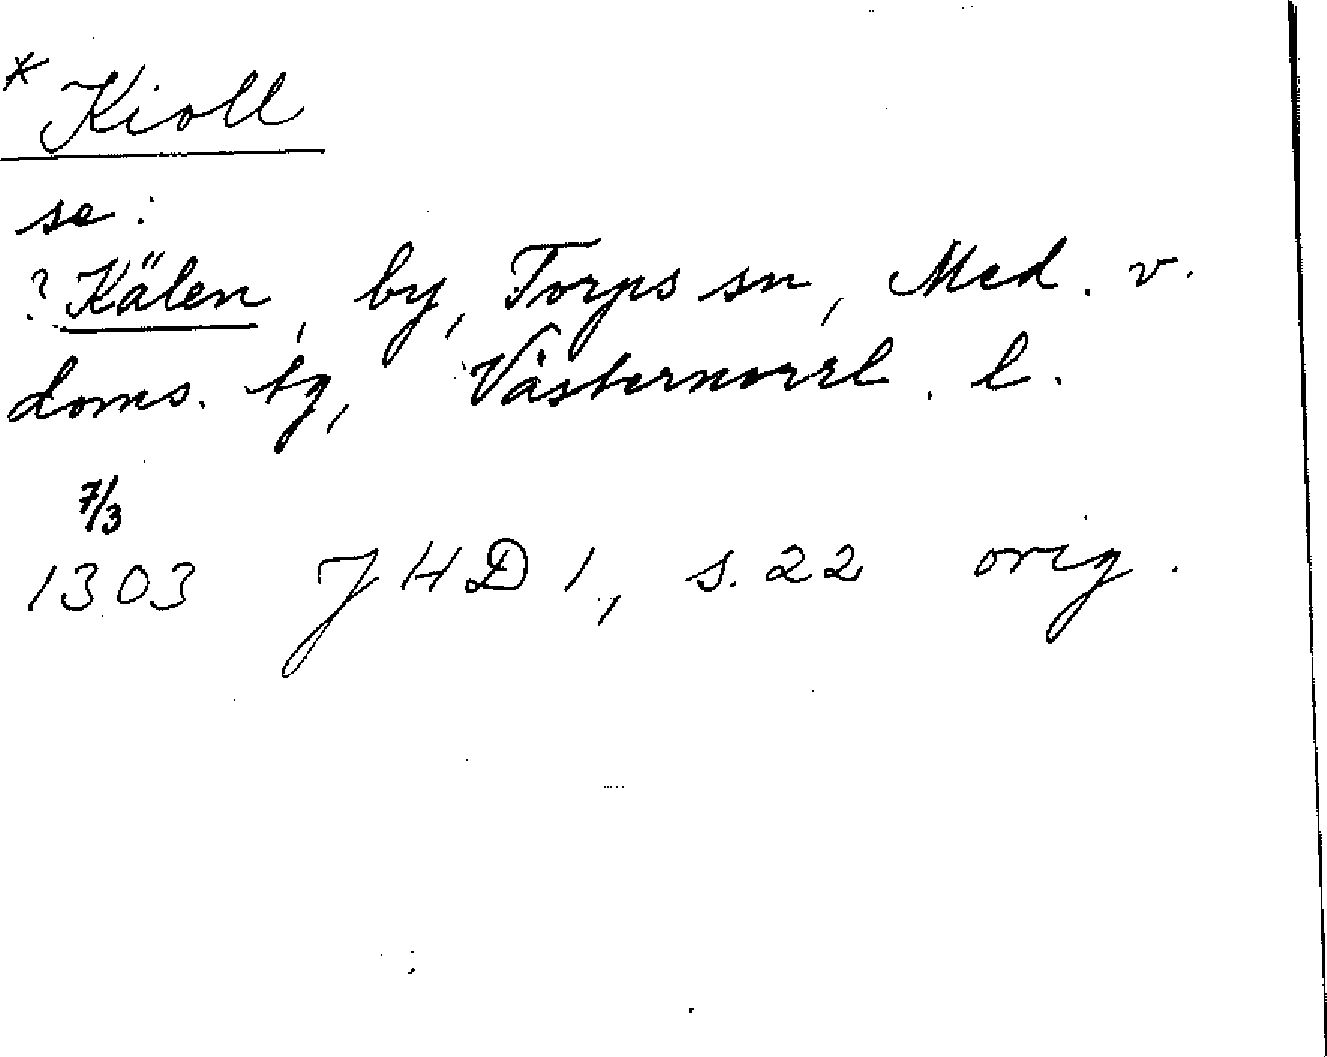 * Kioll
se:
? Kälen, by, Torps sn, Med. v.
doms. tg, Västernorrl. l.
7/3
1303 JHD 1, s. 22 orig.